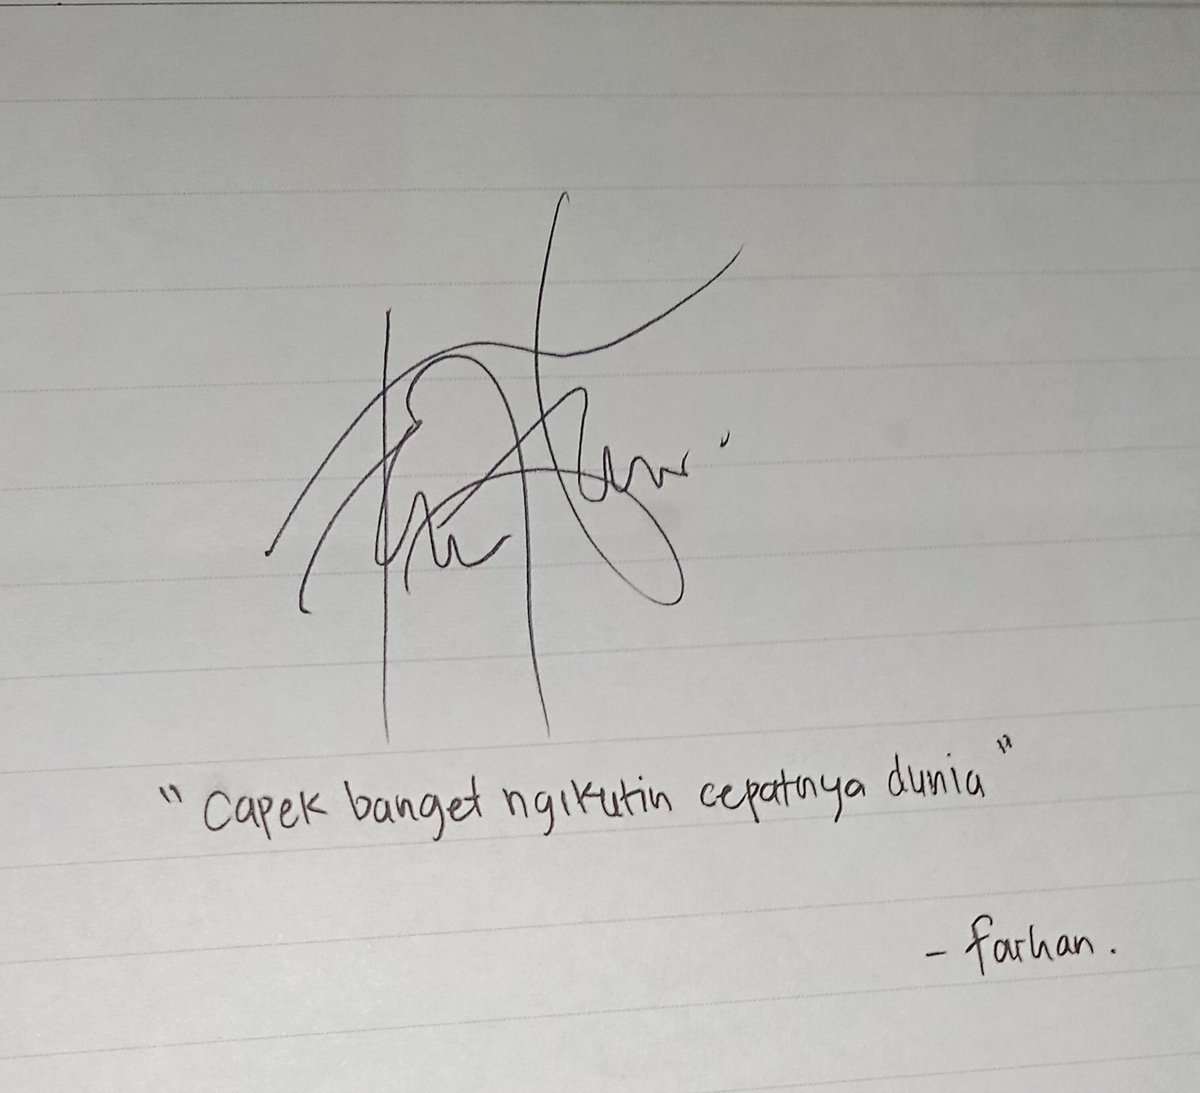 " Capek banget ngikutin cepatnya dunia "
- farhan.